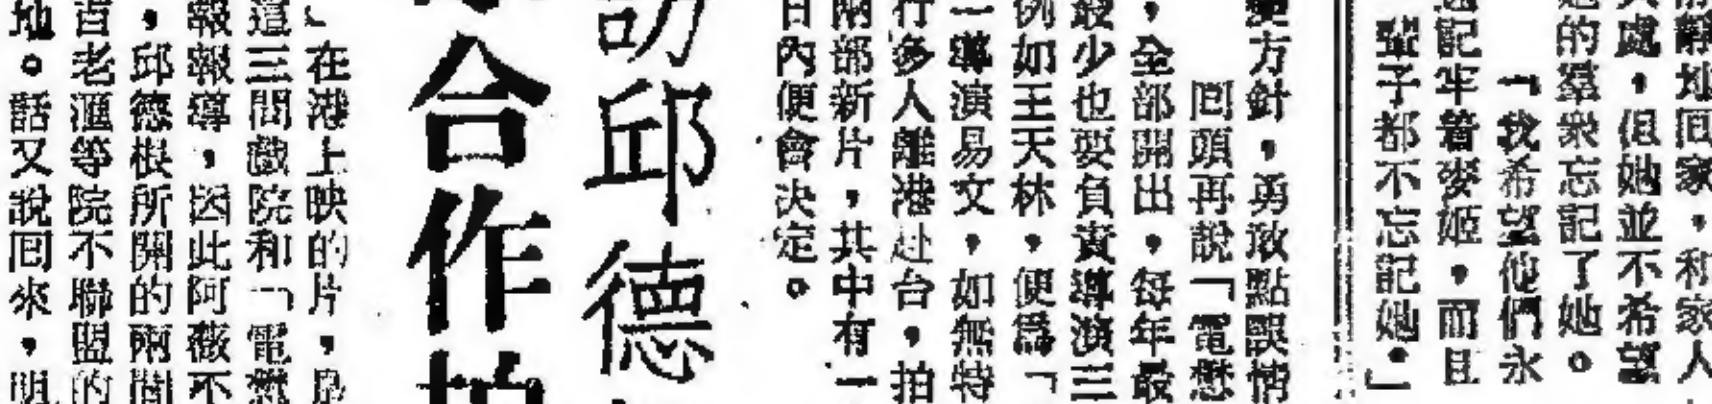 靜地回家，和家人
處，但她並不希望
的羣衆忘記了她。
「我希望他們永
記牢着麥姬，而且
輩子都不忘記她。」
方針，勇敢點誤情
囘頭再說「電懋
，全部開出，每年最
最少也要負責導演三
例如王天林，便爲「
一導演易文，如無特
行多人離港赴台，拍
兩部新片，其中有一
日內便會决定。
訪邱德
合作拍
」在港上映的片，
這三間戲院和「電懋
報報導，因此阿薇不
，邱德根所開的兩間
百老滙等院不聯盟的
地。話又說囘來，明